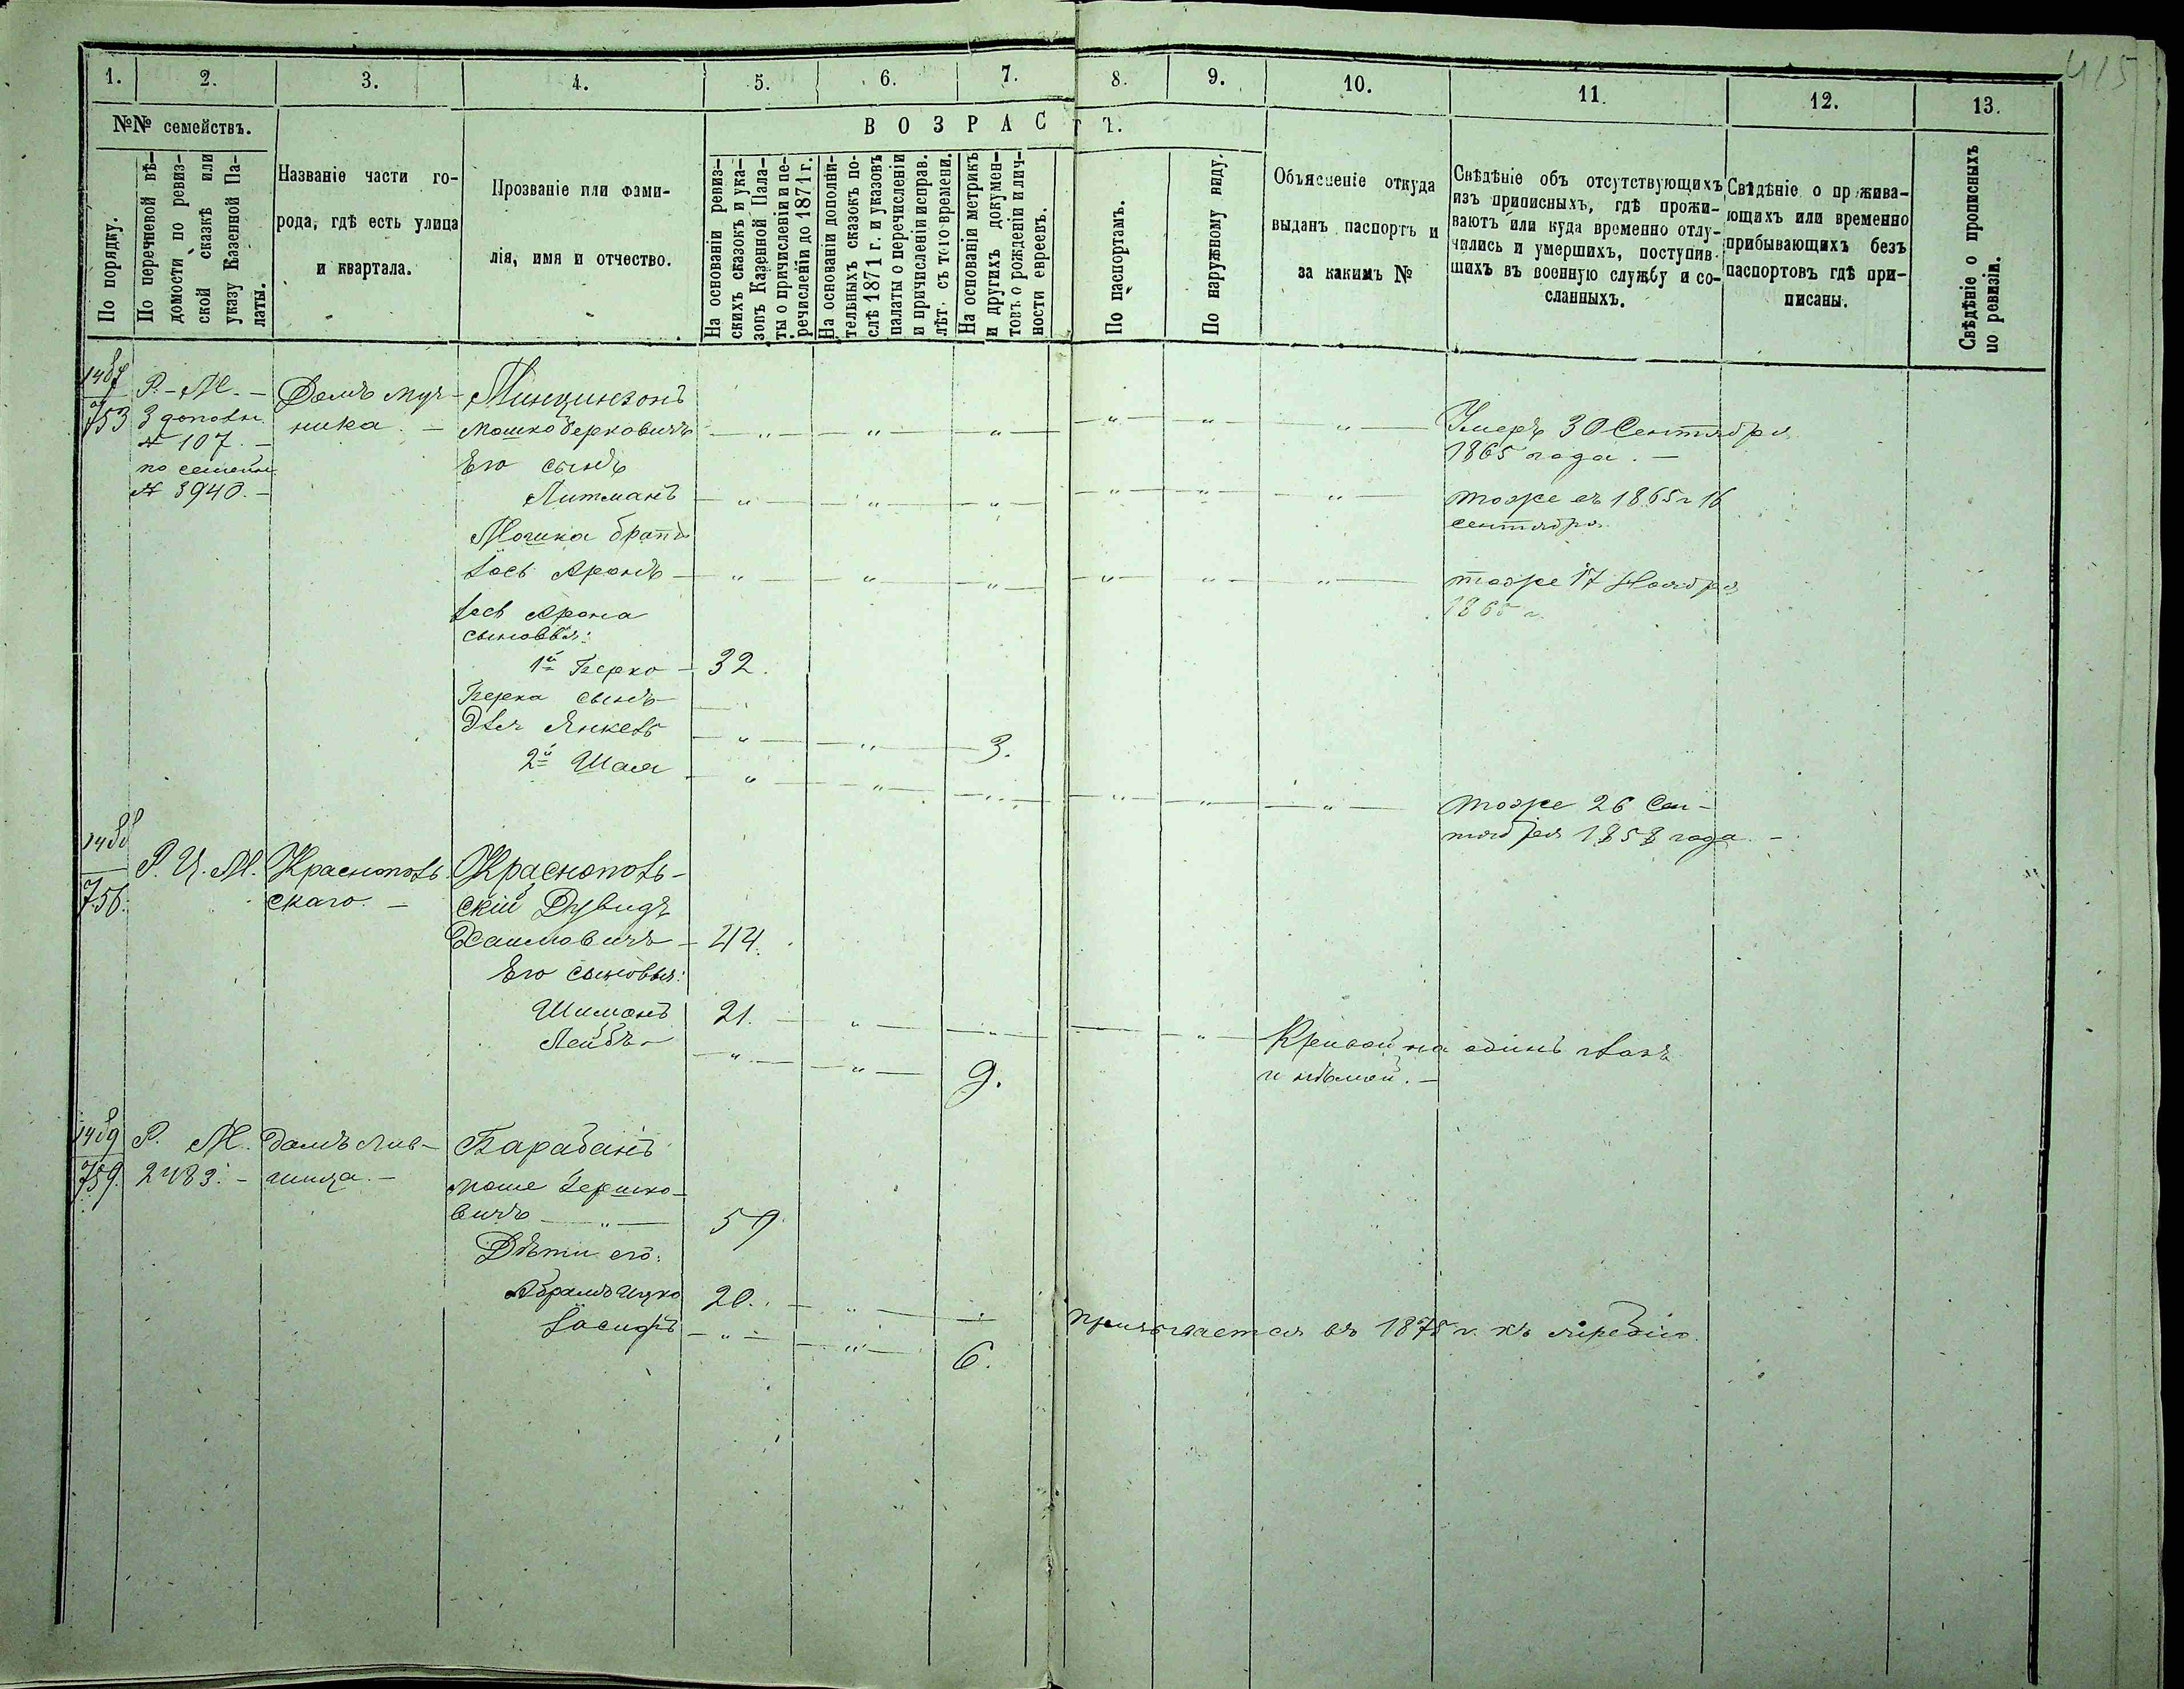 415
1. 2. 3. 4. 5. 6. 7. 8. 9. 10. 11. 12. 13.
№№ семействъ.
В О З Р А С Т Ъ.
По порядку.
По перечневой вѣ-
домости по ревиз-
ской сказкѣ или
указу Казенной Па-
латы.
Названіе части го-
рода, гдѣ есть улица
и квартала.
Прозваніе или фами-
лія, имя и отчество.
На основаніи ревиз-
скихъ сказокъ и ука-
зовъ Казенной Пала-
ты о причисленіи и пе-
речисленіи до 1871 г.
На основаніи дополни-
тельныхъ сказокъ по-
слѣ 1871 г. и указовъ
палаты о перечисленіи
и причисленіи исправ.
лѣт. съ того времени.
На основаніи метрикъ
и другихъ докумен-
товъ о рожденіи и лич-
ности евреевъ.
По паспортамъ.
По наружному виду.
Объясненіе откуда
выданъ паспортъ и
за какимъ №
Свѣдѣніе объ отсутствующихъ
изъ приписныхъ, гдѣ прожи-
ваютъ или куда временно отлу-
чились и умершихъ, поступив-
шихъ въ военную службу и со-
сланныхъ.
Свѣдѣніе о прожива-
ющихъ или временно
прибывающихъ безъ
паспортовъ гдѣ при-
писаны.
Свѣдѣніе о прописныхъ
по ревизіи.
1487
753
Р. - М. -
3 дополн.
№ 107. -
по семейн.
№ 3940. -
Домъ муч-
ника. -
Минцинзонъ
Мошко Берковичъ - " - " - " - " - " - " - Умеръ 30 Сентября
1865 года. -
Его сынъ
Литманъ - " - " - " - " - " - " - тоже въ 1865 г 16
сентября
Мошка братъ
Іось Аронъ - " - " - " - " - " - " - тоже 17 Ноября
1865 г.
Іось Арона
сыновья:
1й Берко - 32.
Берка сынъ
Янкель - " - " - 3.
2й Шая - " - " - " - " - " - " - тоже 26 Сен-
тября 1858 года. -
1488
756.
Р. Ц. М.
Краснополь
скаго. -
Краснополь-
скій Дувидъ
Хаимовичъ - 44.
Его сыновья:
Шимонъ 21. - " - " - " - Кривой на одинъ глазъ
и нѣмой. -
Лейбъ - " - " - 9.
1489
759.
Р. М.
2483. -
домъ Лив-
шица. -
Барабанъ
Моше Гершко-
вичъ - " - 59
Дѣти его:
Абрамъ Ицко 20. - " - призывается въ 1875 г. къ жребію.
Іосифъ - " - " - 6.